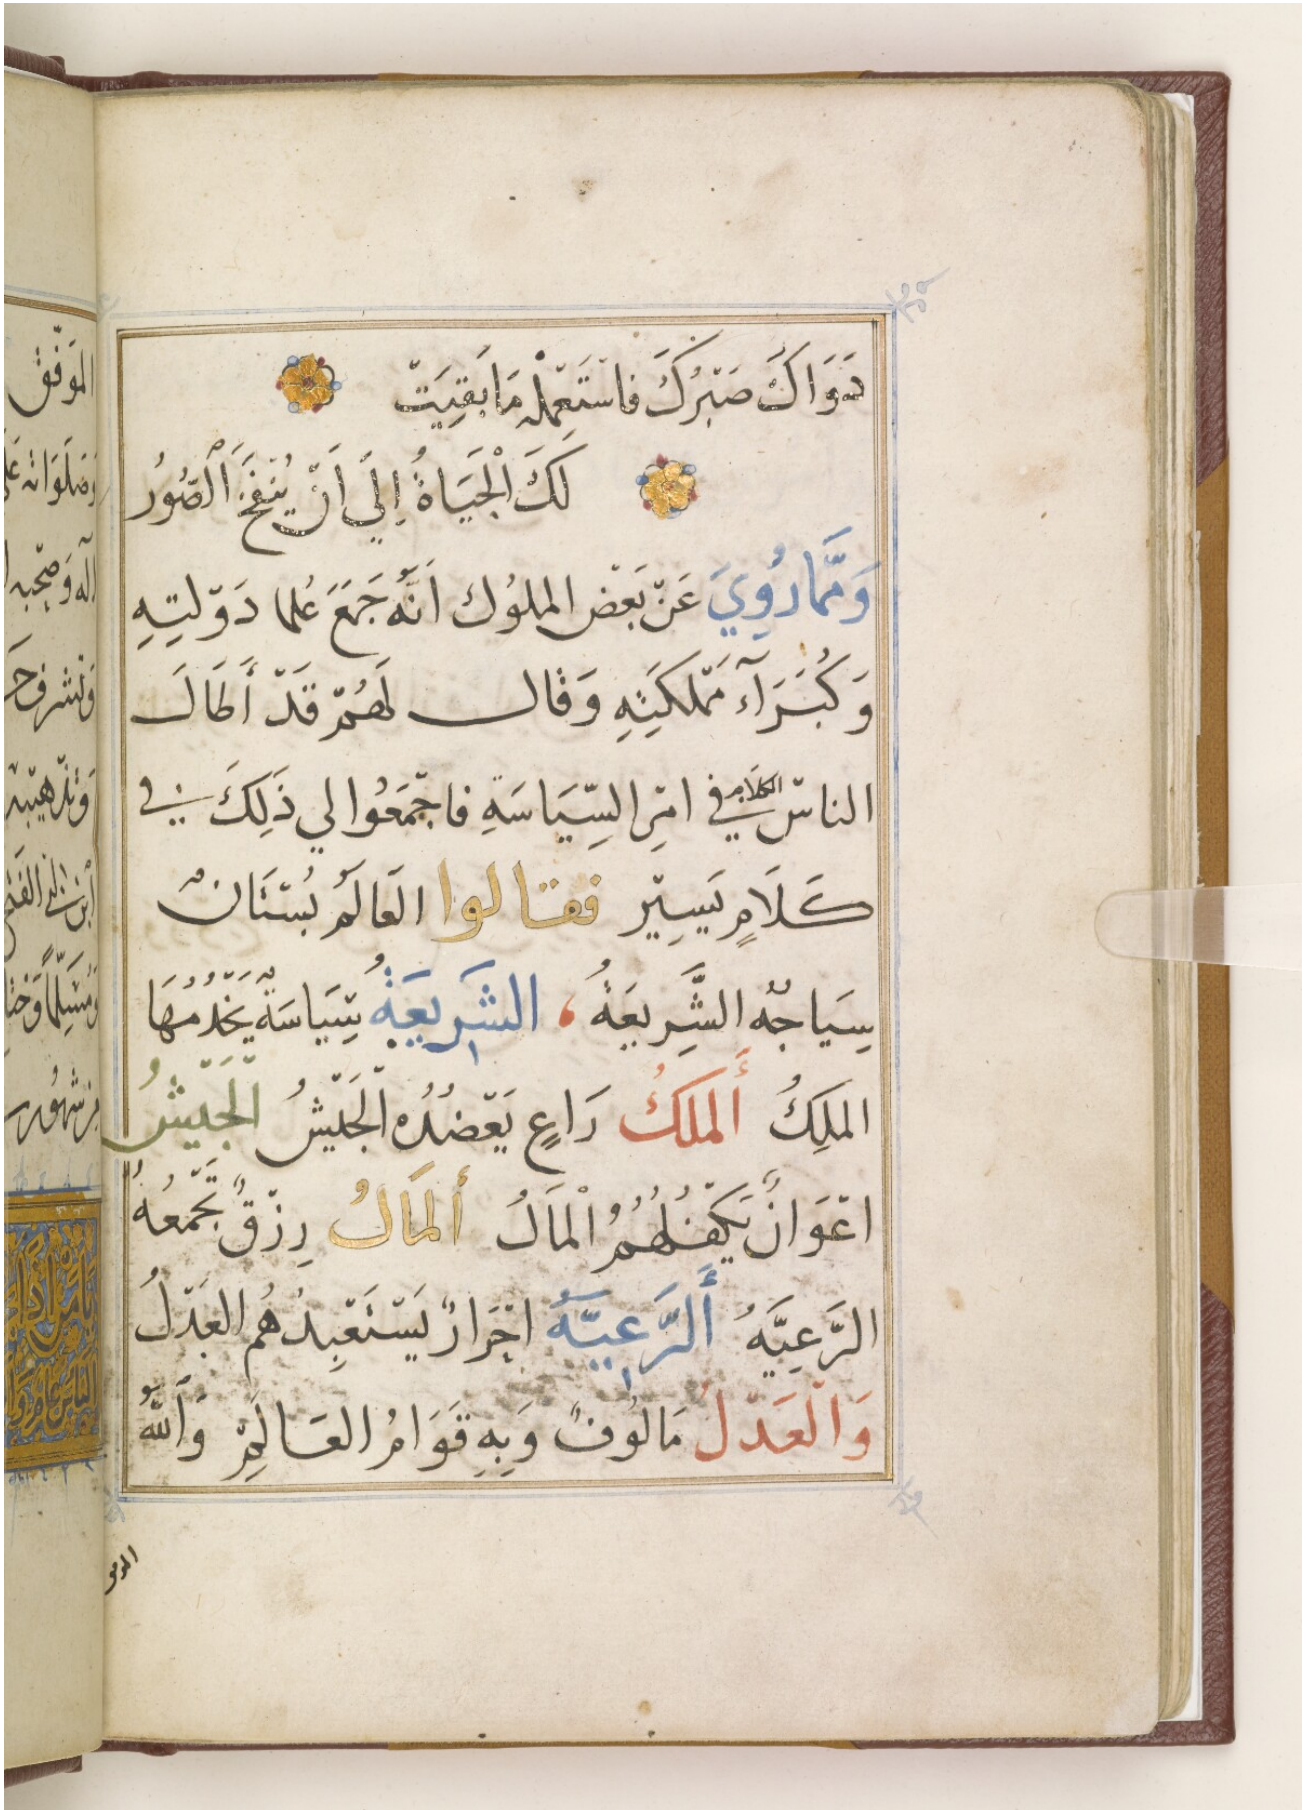 دَوَاكَ صَبْرُكَ فاسْتَعْمِلْهُ مَا بَقِيَتْ
لَكَ الْحَيَاةُ إِلَي أَنْ يُنْفَخَ الصُّورُ
وَمَمَّا رُوِيَ عَنْ بَعْض الملوُك اَنَّهُ جَمَعَ عُلما دَوْلتِهِ
وَكُبَرَآءَ مَمْلكَتِهِ وَقال لَهُمْ قَدْ أَطَالَ
الناسْ الكلَامْ فِي امْرِ السِّيَاسَةِ فاجْمَعُوا لي ذَلِكَ فِي
كَلَامٍ يَسِيْرٍ فقالوا العَالَمُ بُسْتَانٌ
سِيَاجهُ الشَّرِيعَةُ ، الشَرِيعَةُ سِيَاسَةٌ يَخْدُمُهَا
الملِكُ أَلملكُ رَاعٍ يَعْضُدُهُ الْجَيْشُ الْجَيْشُ
اعْوَانٌ يَكْفُلُهُمُ الْمَالُ أَلمَالُ رِزْقٌ تَجْمَعُهُ
الرَّعِيَّهُ أَلرَّعِيَّهُ احْرَارٌ يَسْتَعْبِدُهُم العَدْلُ
وَالْعَدْلُ مَالوُفٌ وَبِهِ قَوَامُ العَالَمِ وَاللهُ
الموفق
المَوفّق